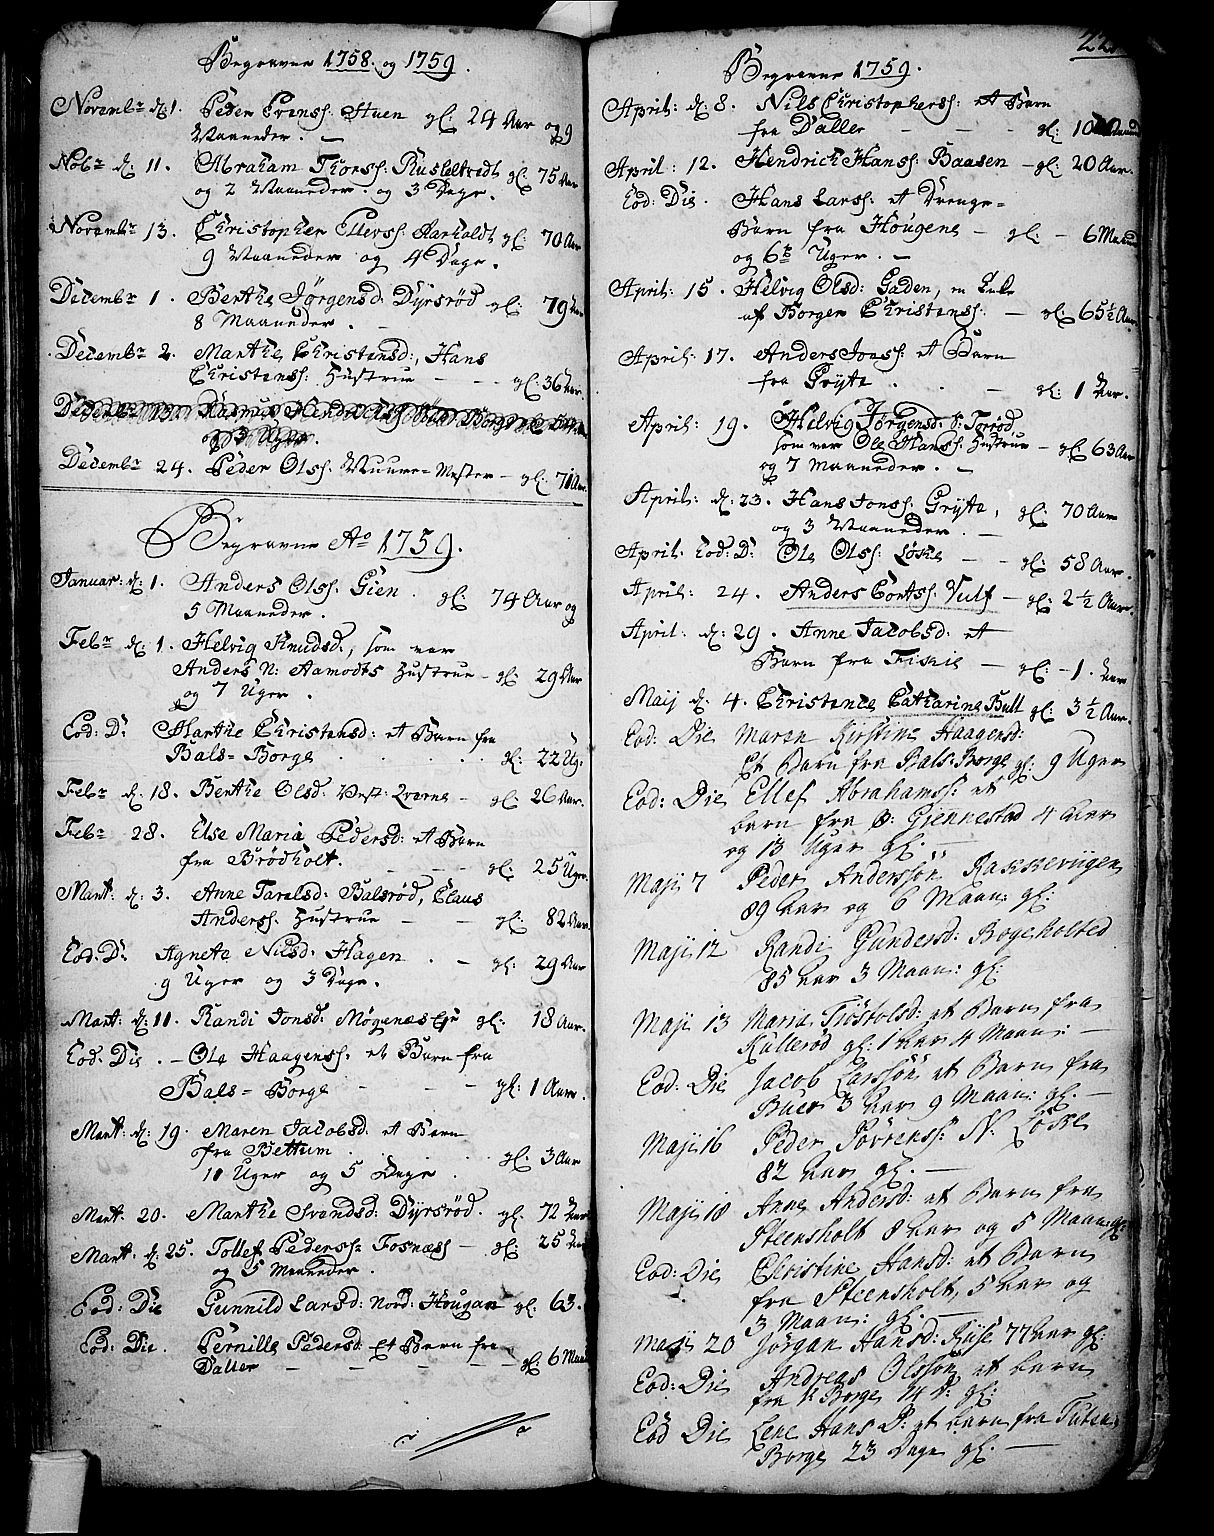 Begravne 1758. og 1759.
Novembr d: 1. Peder Evenss: Huen gl: 24 Aar og 9
Maaneder. —
Nobr d: 11. Abraham Thorss: gl: 75 Aar
og 2 Maaneder. og 3 Dage.
Novembr 13. Christopher Ellevss: Aarholdt gl: 70 Aar
9 Maaneder og 4 Dage.
Decembr 1. Berthe Jørgensd: Dyrsrød gl: 79 Aar
8 Maaneder.
Decembr 2. Marthe Christensd:, Hans
Christenss: Hustrue - - - gl: 36 Aar.
Decembr 24. Peder Olss: Muure-Mester - gl: 71 Aar.
Begravne Ao 1759.
Januar: d: 1. Anders Olss: Gien. gl: 74 Aar og
5 Maaneder.
Febr d: 1. Helvig Knudsd:, som var
Anders N: Aamodts Hustrue - gl: 29 Aar
og 7 Uger.
Eod: D: Marthe Christensd: et Barn fra
Bals-Borge gl: 22 Ug:
Febr d: 18. Berthe Olsd: Vest: Qverne - gl: 26 Aar.
Febr 28. Else Maria Pedersd: et Barn
fra Brødholt. - - - gl: 25 Uger.
Mart: d: 3. Anne Taralsd: Balsrød, Claus
Anderss: Hustrue - - gl: 82 Aar.
Eod: D: Agnete Nilsd: Hagen . - gl: 29 Aar
9 Uger og 3 Dage.
Mart: d: 11. Randi Jonsd: gl: 18 Aar.
Eod: Die. - Ole Haagenss: et Barn fra
Bals-Borge - - - gl: 1 Aar.
Mart: d: 19. Maren Jacobsd: et Barn
fra Bettum. gl: 3 Aar
11 Uger og 5 Dage.
Mart: 20. Marthe Svendsd: Dyrsrød. gl: 72 Aar
Mart: d: 25. Tollef Pederss: Fosnæss - gl: 25 Aar
og 5 Maaneder.
Eod: Die Gunnild Larsd: Nord: Hougan gl: 63.
Eod: Die. Pernille Pedersd: Et Barn fra
Daller - - - gl: 6 Maan
22
Begravne 1759.
April: d: 8. Nils Christopherss: et Barn
fra Daller - - - gl: 10
April: 12. Hendrich Hanss: Baasen - gl: 20 Aar.
Eod: Die. Hans Larss: et Drenge-
Barn fra Hougene - gl: - 6 Maan
og 6 Uger. -
April: 15. Helvig Olsd: Gaden,
af Borger Christenss: - gl: 65 1/2 Aar
April: 17. Anders Jonss: et Barn
fra Gryte . . - gl: 1 Aar.
April: 19. Helvig Jørgensd:
som var Ole Hanss: Hustrue - gl: 63 Aar
og 7 Maaneder. -
April: d: 23. Hans Jonss: Gryte, gl: 70 Aar
og 3 Maaneder. -
April: Eod: D: Ole Olss: Løske - - gl: 58 Aar.
April: 24. Anders Cortss: Vulf - gl: 2 1/2 Aar.
April: d: 29. Anne Jacobsd: et
Barn fra - gl: -1. Aar
Maij d: 4. Christence Catharine Bull gl: 3 1/2 Aar.
Eod: Die Maren Kirstine Haagensd:
Et Barn fra Bals-Borge gl: 9 Uger
Eod: Die Ellef Abrahamss: et
barn fra Ø: Gjennestad 4 Aar
og 13 Uger gl: -
Maji 7 Peder Anderssøn Rakkeviigen
89 Aar og 6 Maan: gl:
Maji 12 Randi Gundersd: Bogeholted
85 Aar 3 Maan: gl:
Maji 13 Maria Tröstolsd: et Barn fra
Kullerød gl: 1 Aar 4 Maan: -
Eod: Die Jacob Larssøn et Barn fra
Buer 3 Aar 9 Maan: gl: -
Maji 16 Peder Sövrenss: N. Löske
82 Aar gl: -
Maji 18 Anne Andersd: et Barn fra
Steensholt 8 Aar og 5 Maan: gl:
Eod: Die Christine Hansd: et Barn
fra Steensholt, 5 Aar og
3 Maan: gl: -
Maji 20 Jørgan Hansd: Riise 77 Aar gl:
Eod: Die Andreas Olssøn et barn
fra Borge 14 D: gl:
Eod Die Lene Hans D: et barn fra
Borge 23 Dage gl: -